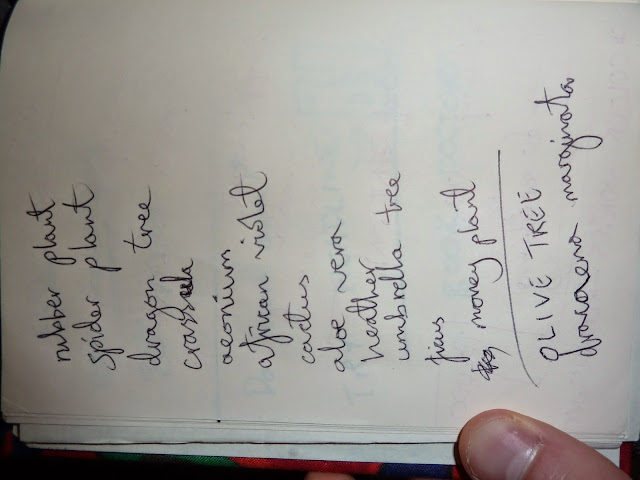 rubber plant
spider plant
dragon tree
crassula
aeonium
african violet
cactus
aloe vera
heather
umbrella tree
ficus
money plant
OLIVE TREE
dracaena marginata